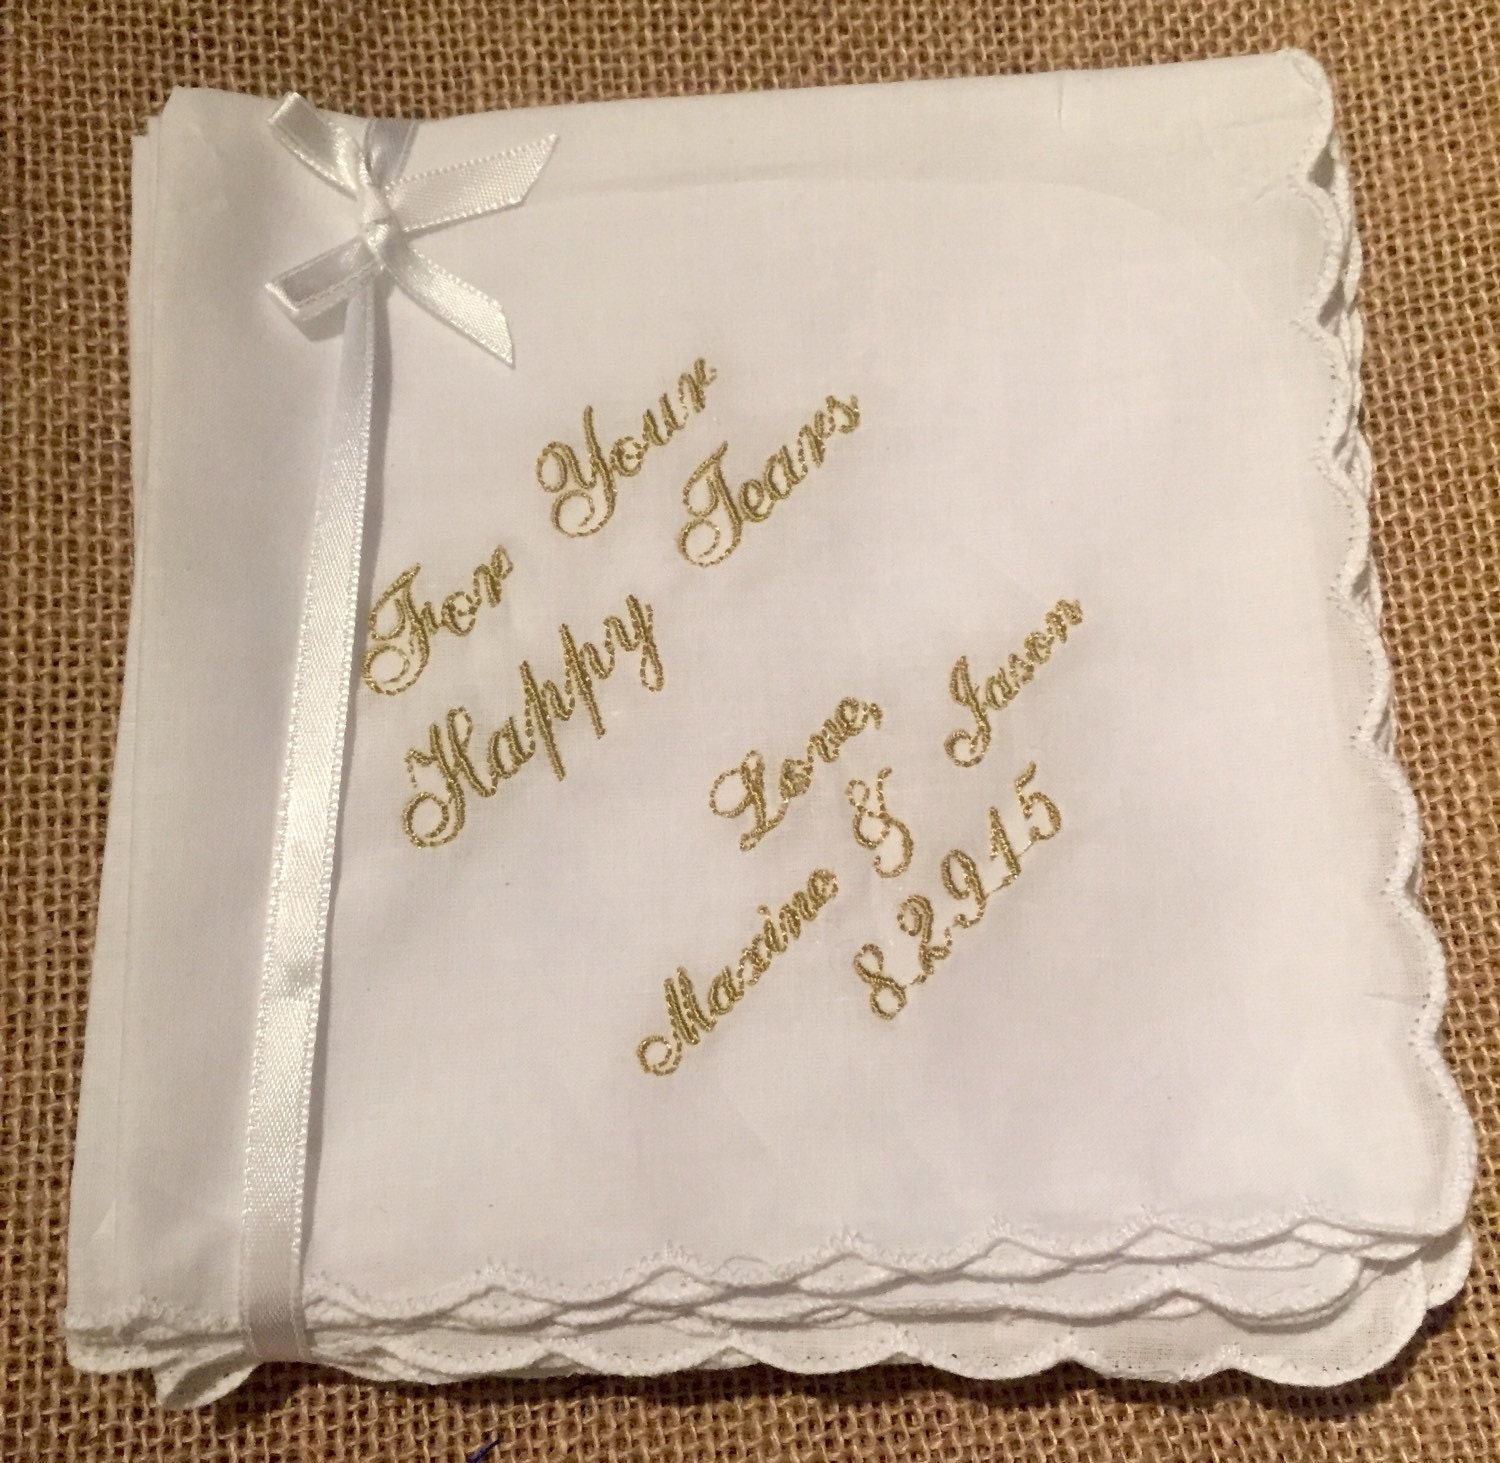 For Your
Happy Tears
Love,
Maxine & Jason
8.29.15